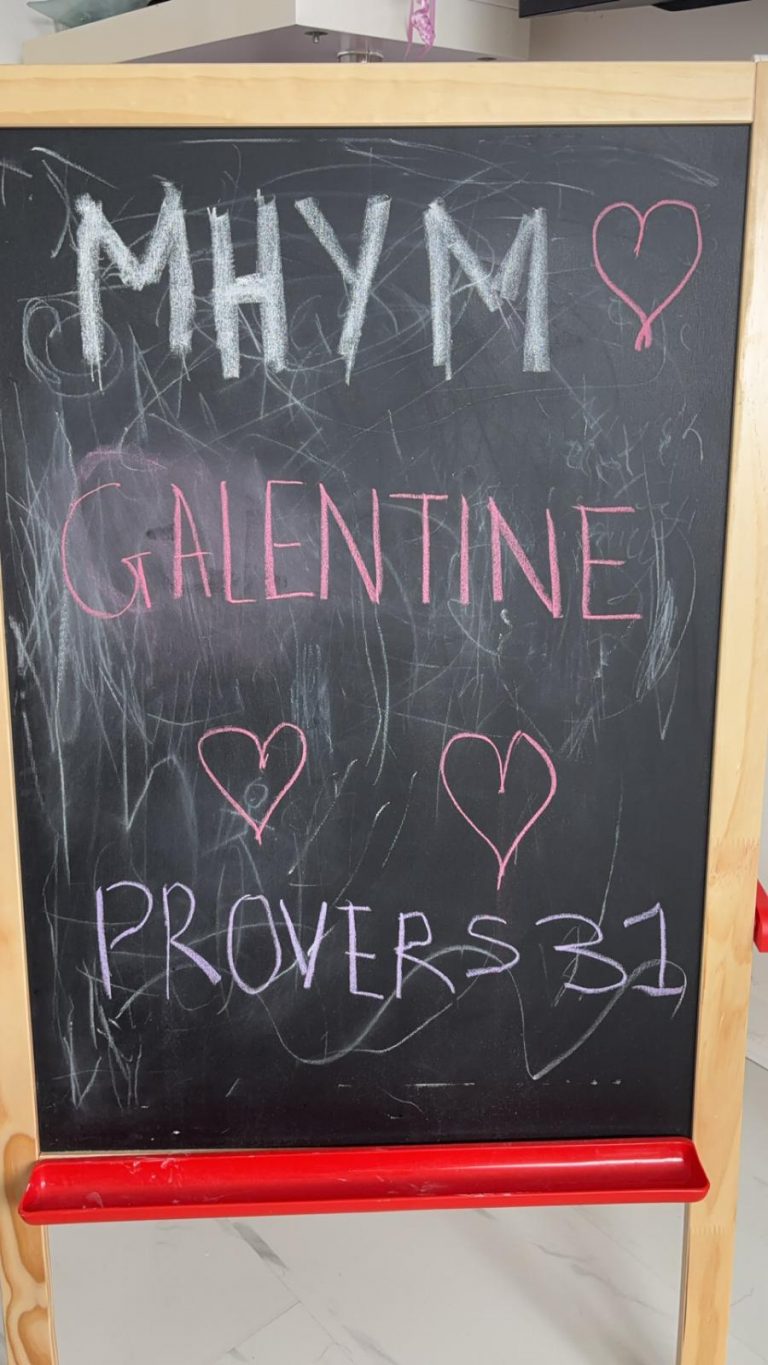 MHYM
GALENTINE
PROVERS 31